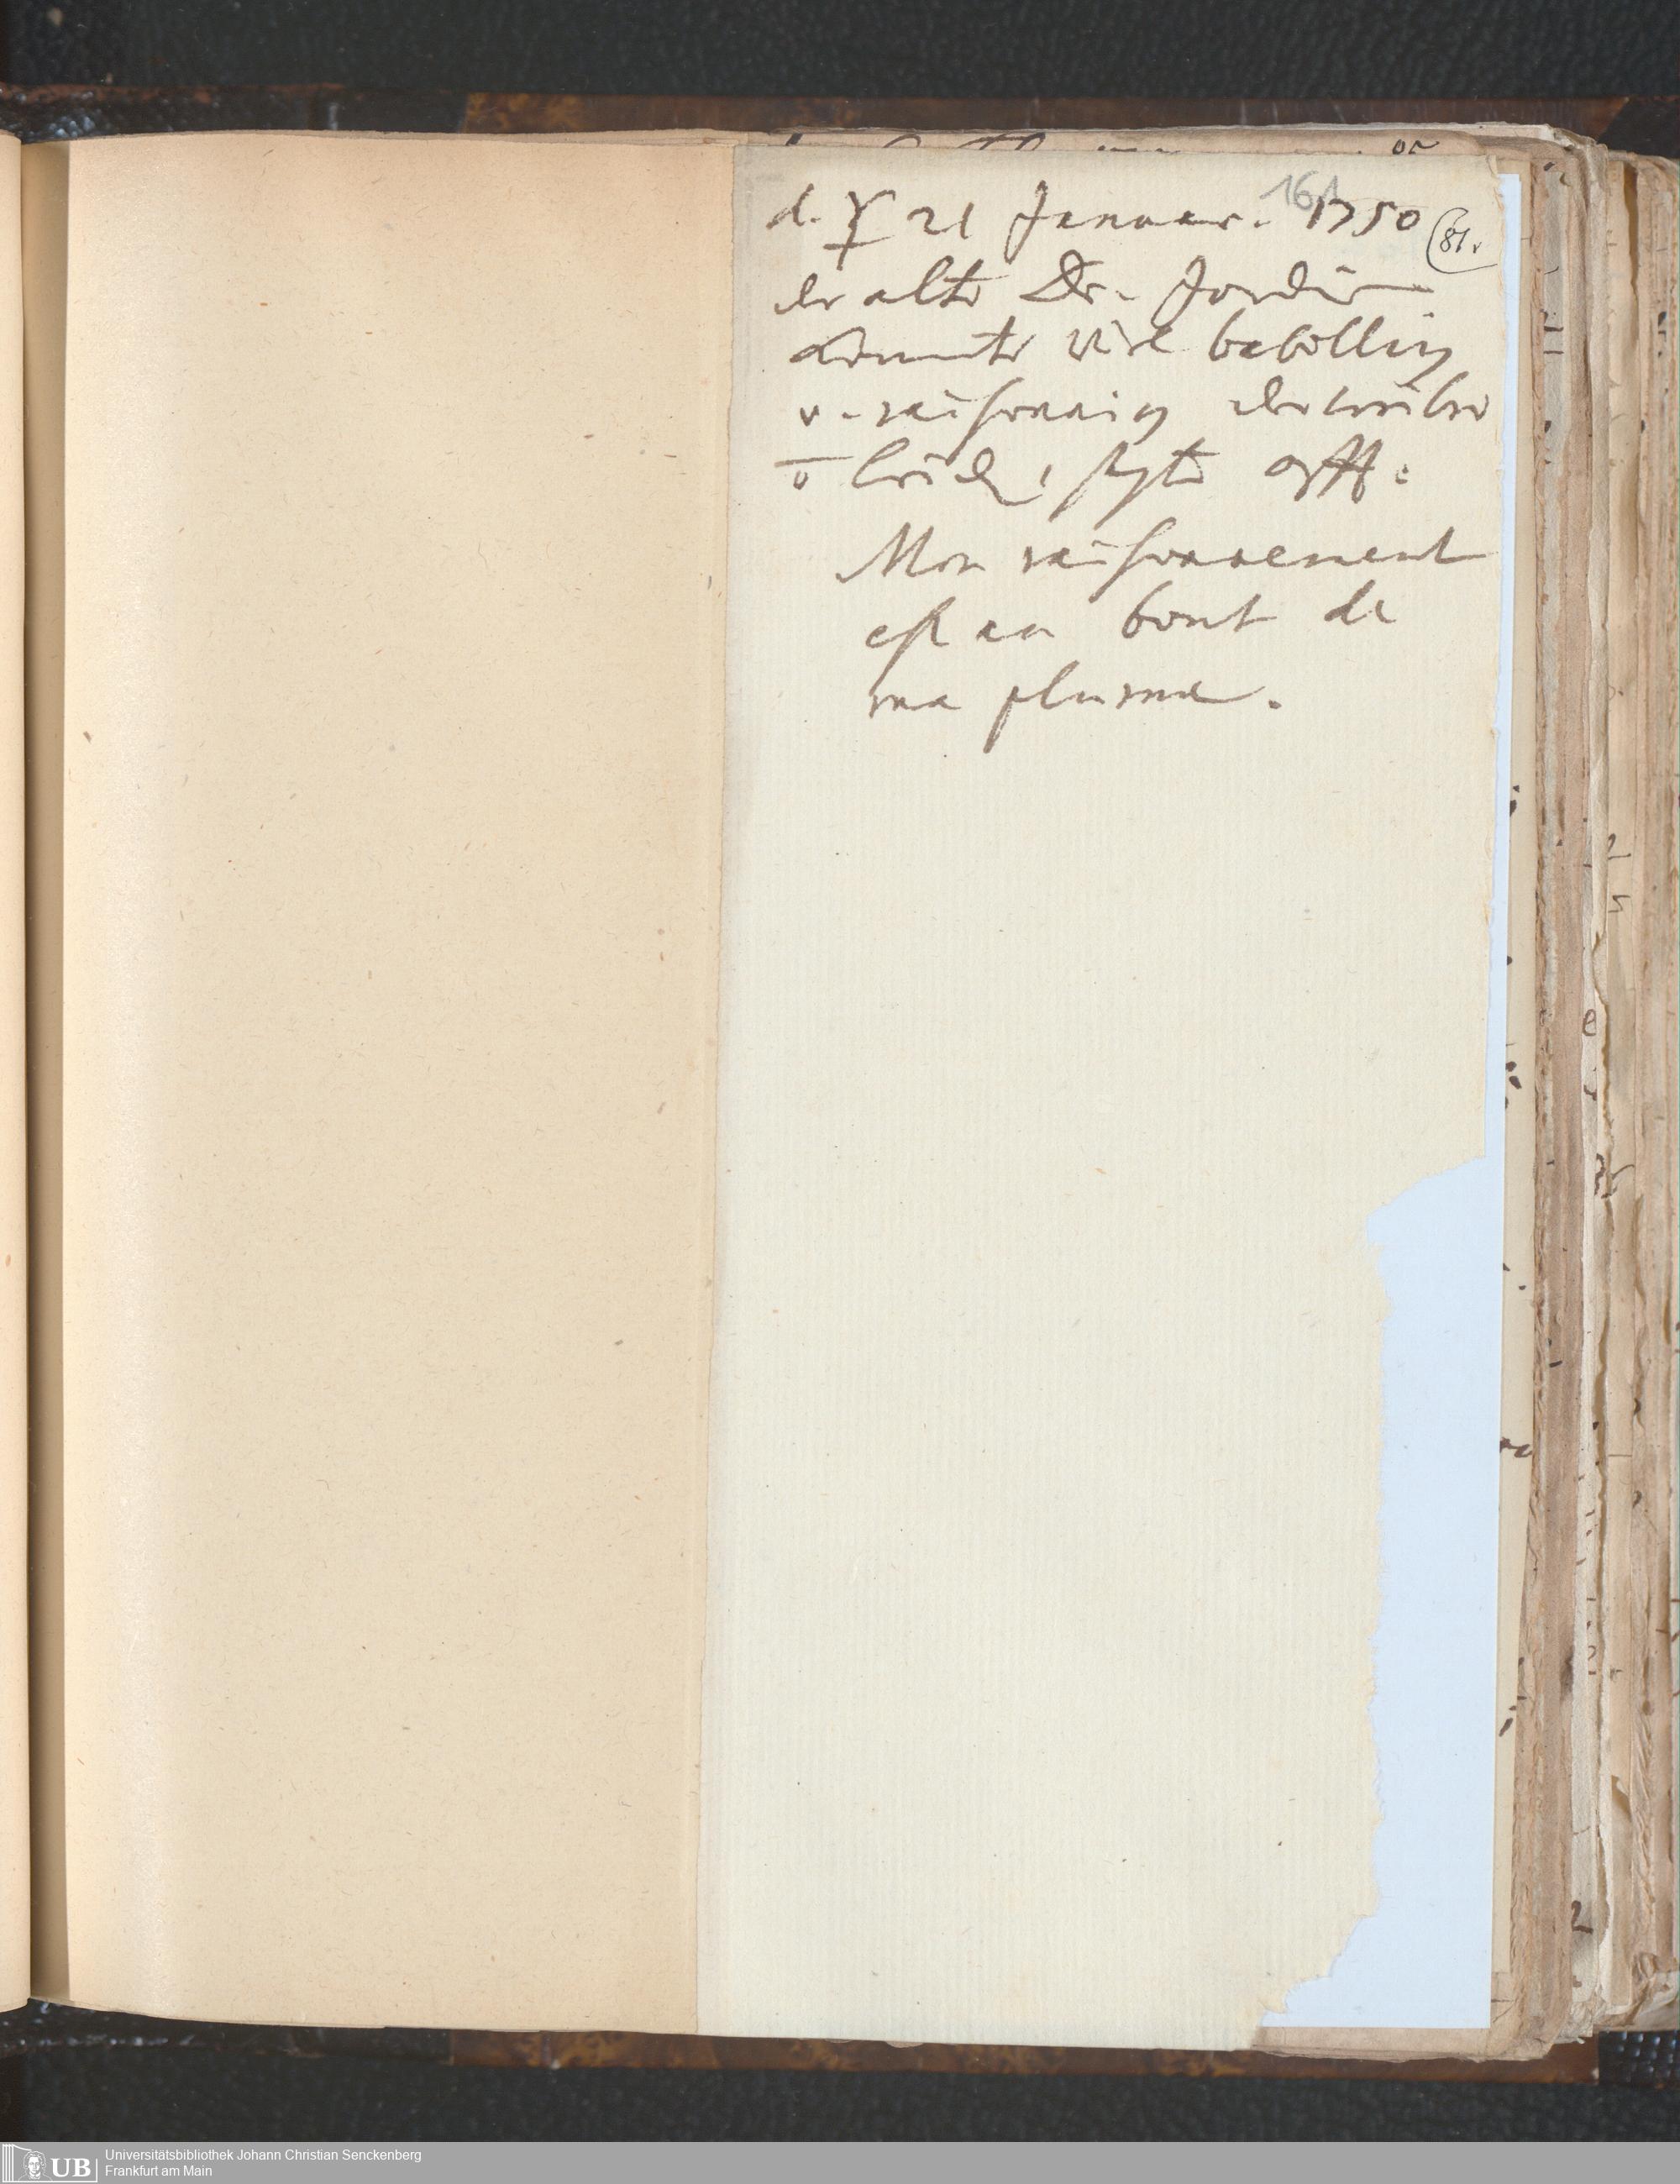 161
d. ☿ 21 Januar. 1750
81.
der alte Dr. Jordis
konnte viel
u. der weiber
sagte offt:
Mon raisonnement
est au bout de
ma plume.
UB Universitätsbibliothek Johann Christian Senckenberg
Frankfurt am Main